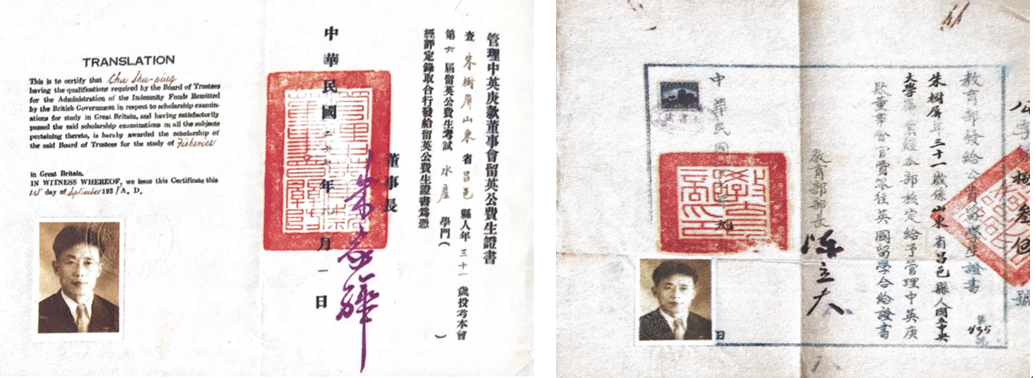 TRANSLATION
This is to certify that Chu Shu-ping
having the qualifications required by the Board of Trustees
for the Administration of the Indemnity Funds Remitted
by the British Government in respect to scholarship examina-
tions for study in Great Britain, and having satisfactorily
passed the said scholarship examinations in all the subjects
pertaining thereto, is hereby awarded the scholarship of
the said Board of Trustees for the study of Fisheries
in Great Britain.
IN WITNESS WHEREOF, we issue this Certificate this
1st day of September 193 A. D.
管理中英庚款董事會留英公費生證書
查朱樹屏山東省昌邑縣人年三十一歲投考本會
第六屆留英公費生考試水產學門(   )
經評定錄取合行發給留英公費生證書為憑
董事長
朱家驊
中華民國二十 年九月一日
教育部發給公費留學生證書
第435號
朱樹屏年三十一歲係山東省昌邑縣人國立中央
大學 業經本部核定給予管理中英庚
款董事會官費派往英國留學合給證書
教育部部長
陳立夫
中華民國
日